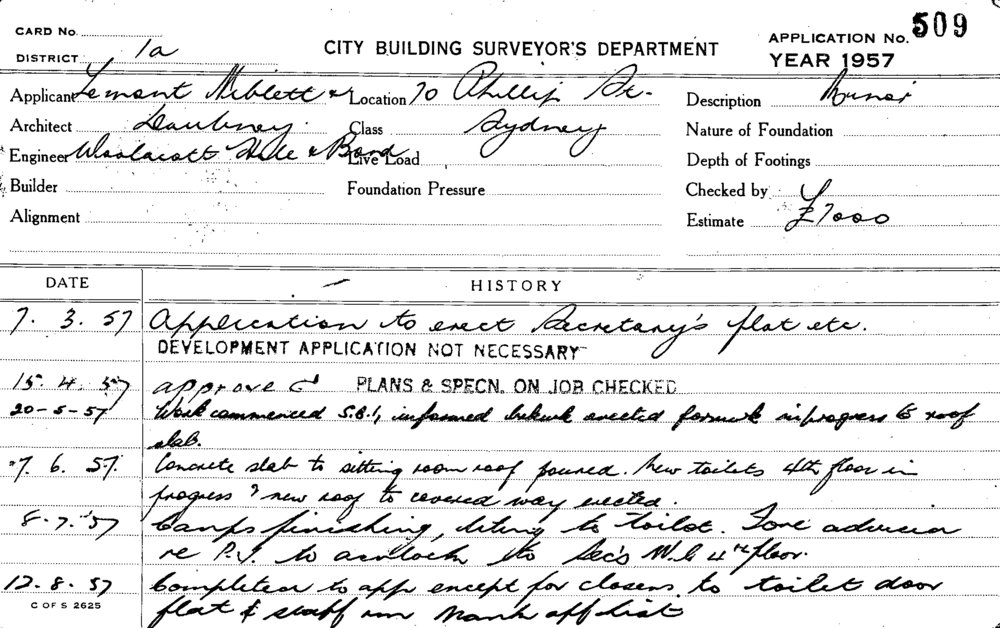 CARD No.
DISTRICT 1a
CITY BUILDING SURVEYOR'S DEPARTMENT
APPLICATION No. 509
YEAR 1957
Applicant Lemont Niblett &
Location 70 Phillip St.
Description Minor
Architect Daubney.
Class Sydney
Nature of Foundation
Engineer Woolacott Hale & Bond
Live Load
Depth of Footings
Builder
Foundation Pressure
Checked by
Alignment
Estimate £7000
DATE HISTORY
7. 3. 57 Application to erect Secretary's flat etc.
DEVELOPMENT APPLICATION NOT NECESSARY
15. 4. 57 approved PLANS & SPECN. ON JOB CHECKED
20-5-57 Work commenced S.B.I, informed brkwk erected formwk in progress to roof
slab.
7. 6. 57. Concrete slab to sitting room roof poured. New toilets 4th floor in
progress & new roof to covered way erected.
8-7-57 finishing, to toilet. Fore
re P.J. to to Sec's W.C 4th floor.
12. 8. 57 Completed to app except for closers to toilet door
flat & staff rm Mark off list
C OF S 2625